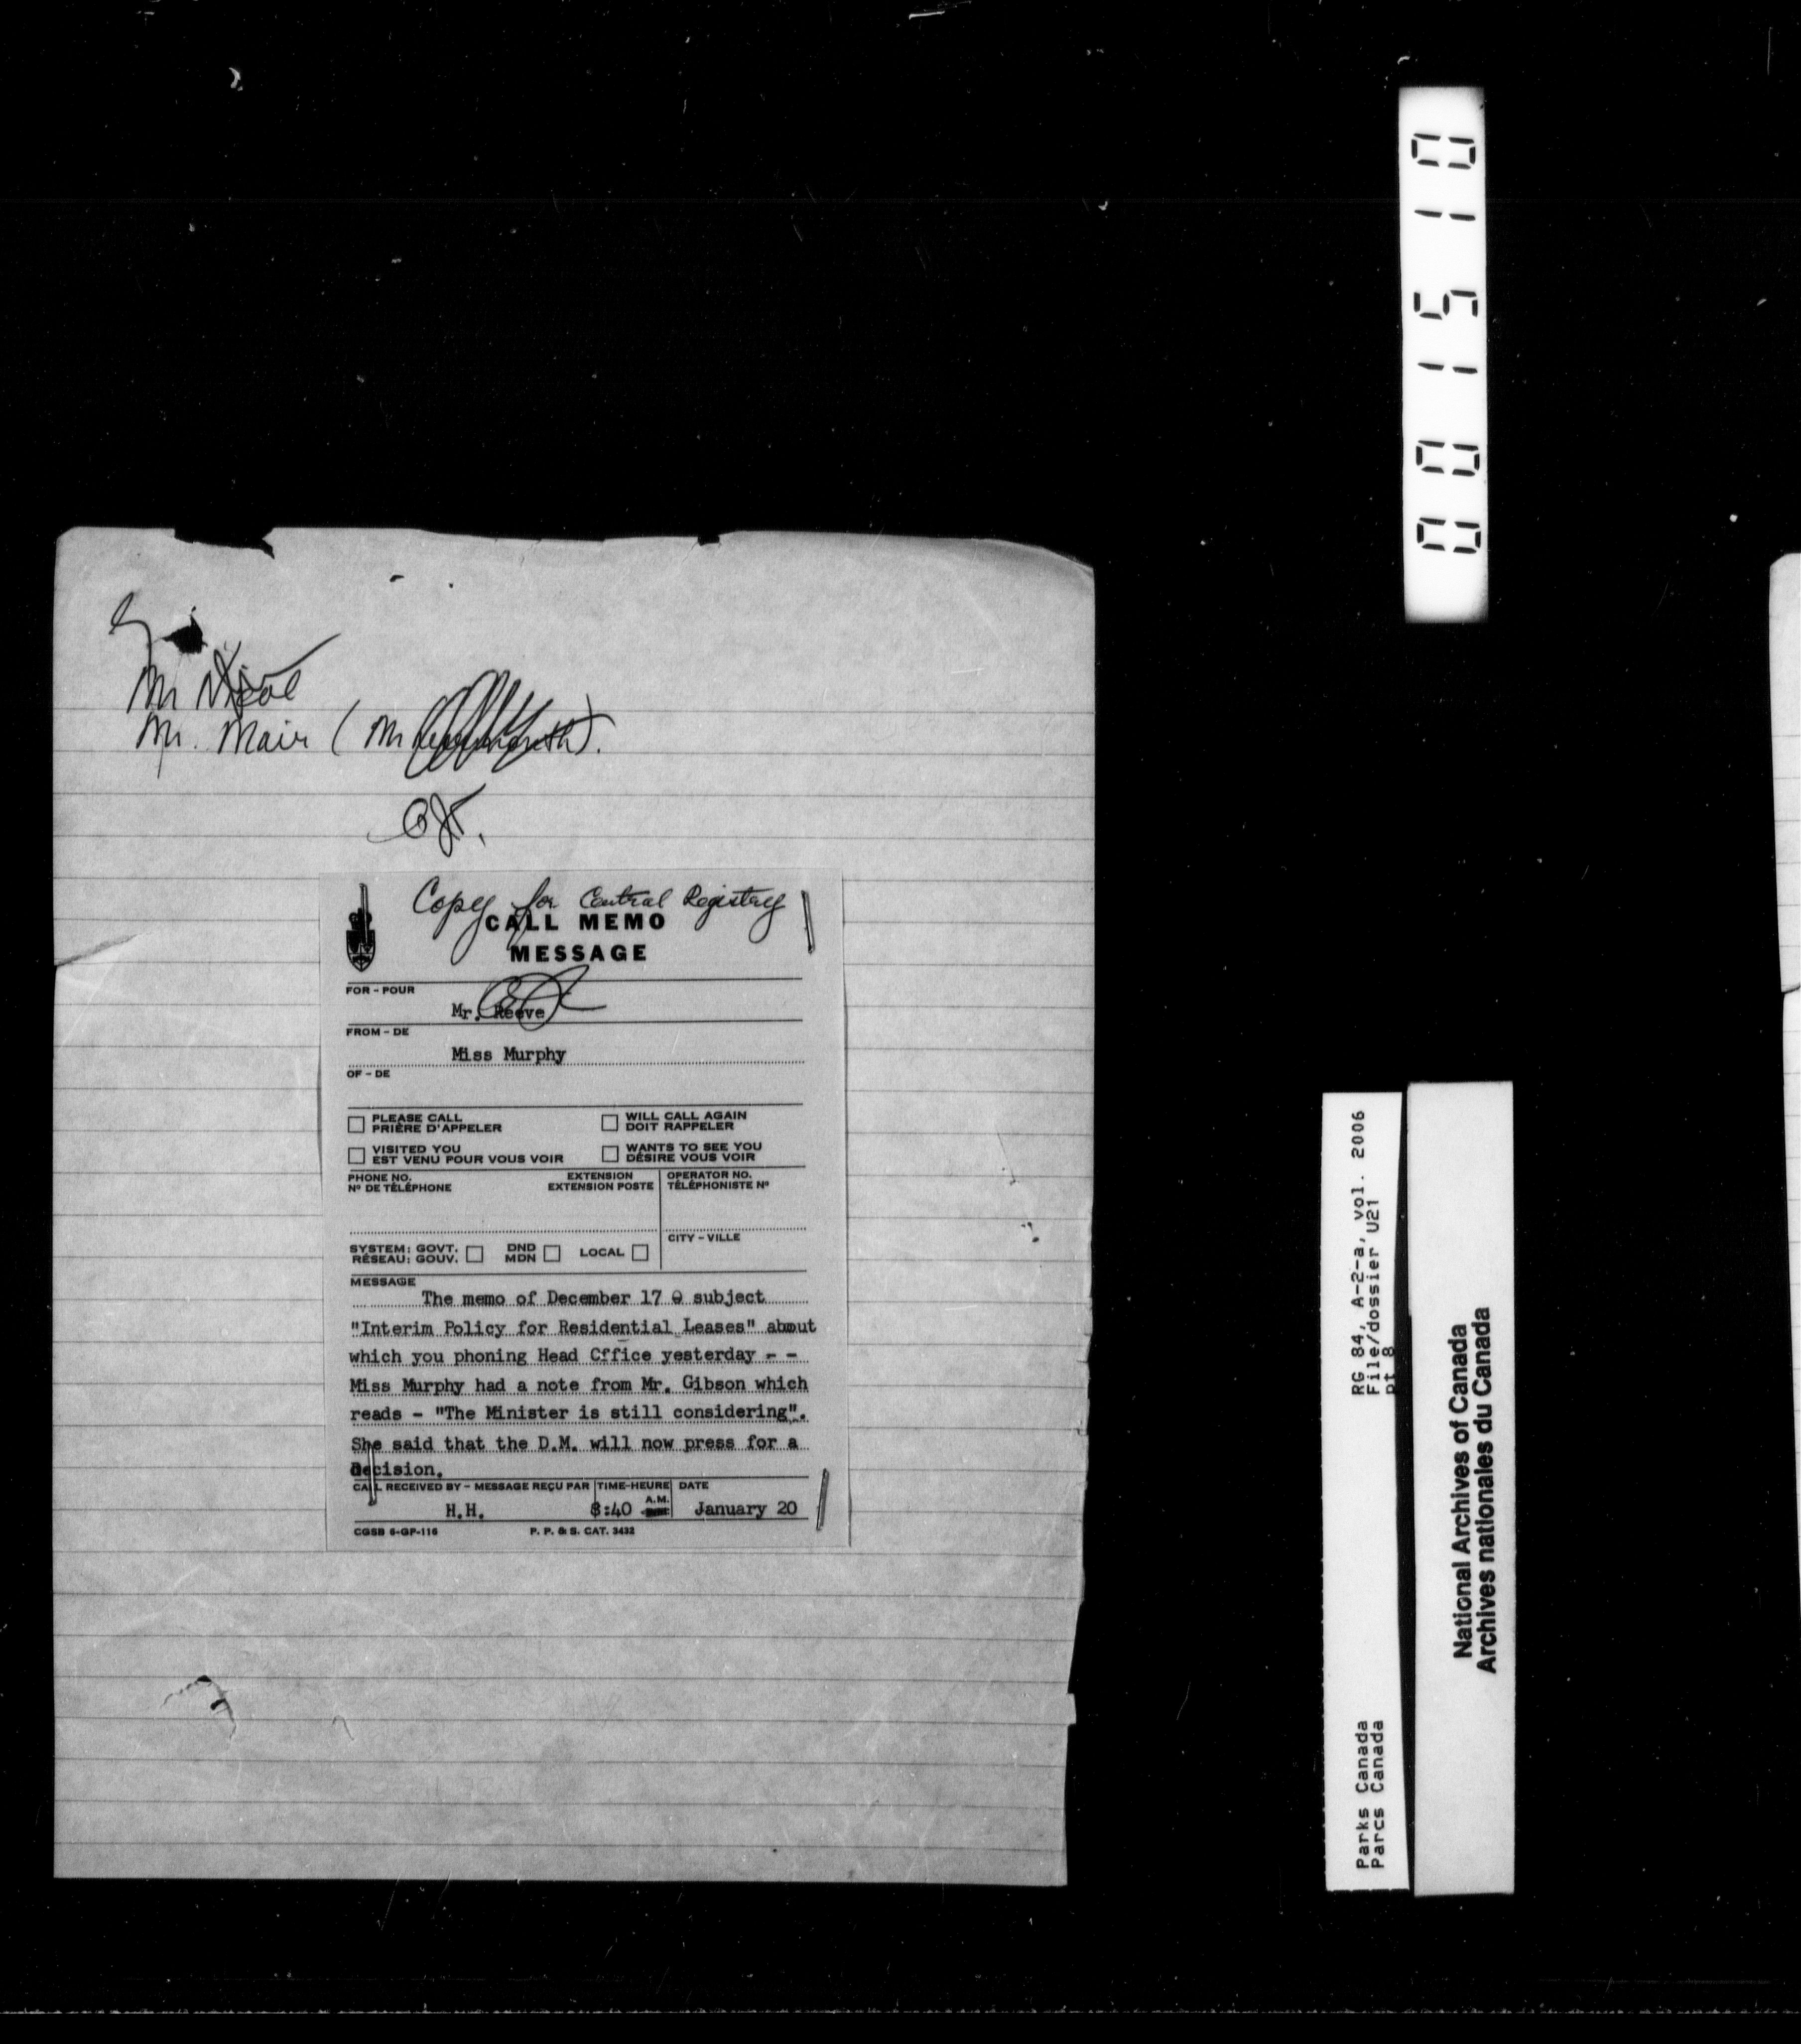 Mr Nicol
Mr. Mair ( Mr
Copy for Central Registry
CALL MEMO
MESSAGE
FOR – POUR
Mr. Reeve
FROM – DE
Miss Murphy
OF – DE
PLEASE CALL
PRIÈRE D'APPELER
WILL CALL AGAIN
DOIT RAPPELER
VISITED YOU
EST VENU POUR VOUS VOIR
WANTS TO SEE YOU
DÉSIRE VOUS VOIR
PHONE NO.
Nº DE TÉLÉPHONE
EXTENSION
EXTENSION POSTE
OPERATOR NO.
TÉLÉPHONISTE Nº
CITY – VILLE
SYSTEM: GOVT.
RÉSEAU: GOUV.
DND
MDN
LOCAL
MESSAGE
The memo of December 17 @ subject
"Interim Policy for Residential Leases" about
which you phoning Head Office yesterday - -
Miss Murphy had a note from Mr. Gibson which
reads - "The Minister is still considering".
She said that the D.M. will now press for a
decision.
CALL RECEIVED BY – MESSAGE REÇU PAR
TIME-HEURE
DATE
H.H.
8:40 A.M.
January 20
CGSB 6-GP-116
P. P. & S. CAT. 3432
001510
RG 84, A-2-a, vol. 2006
File/dossier U21
pt 8
Parks Canada
Parcs Canada
National Archives of Canada
Archives nationales du Canada